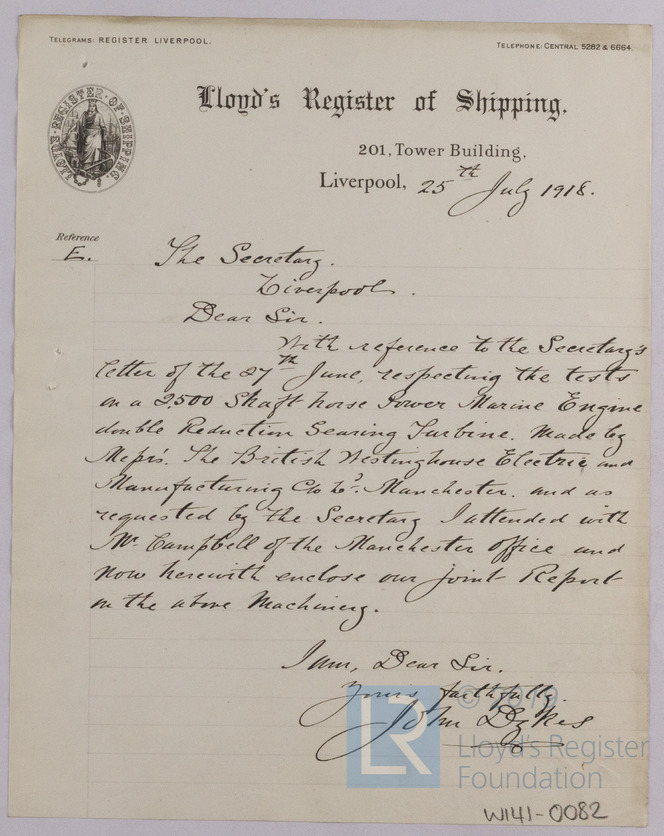 TELEGRAMS: REGISTER LIVERPOOL.
TELEPHONE: CENTRAL 5282 & 6664.
LLOYD'S REGISTER OF SHIPPING.
Lloyd's Register of Shipping,
201, Tower Building,
Liverpool, 25th July 1918.
Reference
E.
The Secretary.
Liverpool.
Dear Sir.
With reference to the Secretary's
letter of the 27th June, respecting the tests
on a 2,500 Shaft horse Power Marine Engine
double Reduction Gearing Turbine. Made by
Messrs. The British Westinghouse Electric and
Manufacturing Co Ld. Manchester. and as
requested by the Secretary I attended with
Mr. Campbell of the Manchester office and
now herewith enclose our joint Report
on the above Machinery.
I am, Dear Sir.
Yours faithfully.
John Dykes
© 2019
LR
Lloyd's Register
Foundation
W141-0082